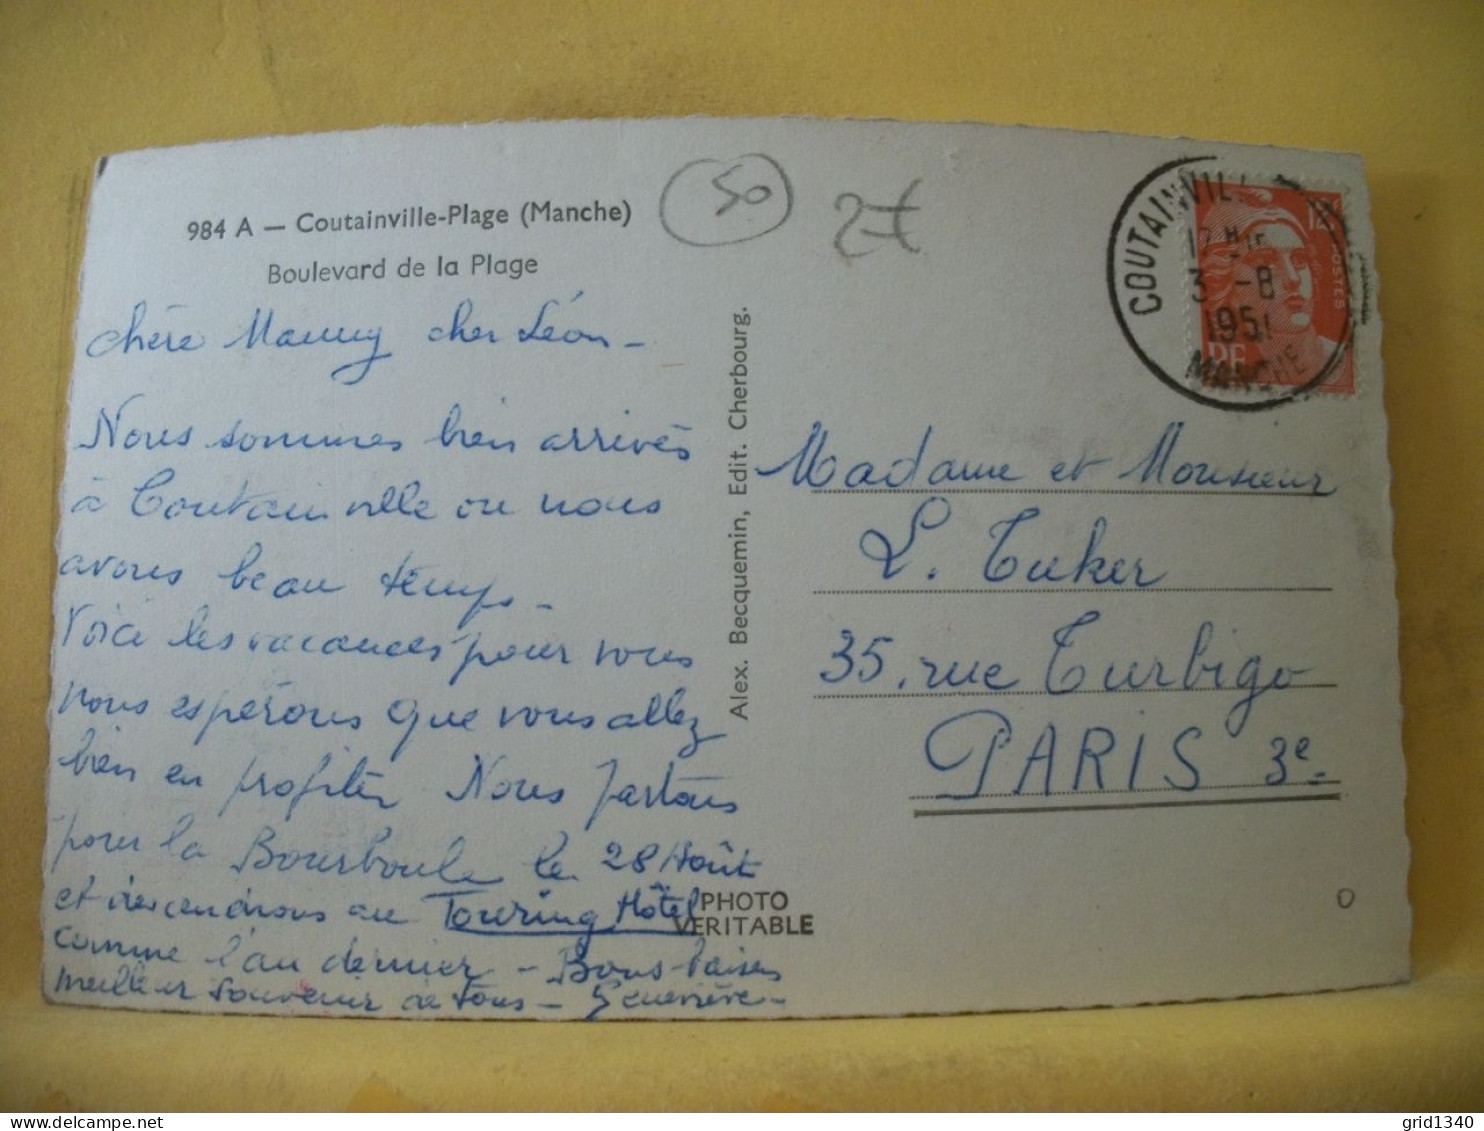 984 A — Coutainville-Plage (Manche)
Boulevard de la Plage
50
2€
COUTAINVILLE
3 -8
1951
MANCHE
12F
POSTES
RF
chère Manny cher Léon –
Nous sommes bien arrivés
à Coutainville ou nous
avons beau temps –
Voici les vacances pour vous
nous espérons que vous allez
bien en profiter Nous partons
pour la Bourboule le 28 Août
et descendrons au Touring Hôtel
comme l'an dernier – Bons baisers
meilleur souvenir de tous – Geneviève –
Alex. Becquemin, Edit. Cherbourg.
PHOTO
VERITABLE
Madame et Monsieur
L. Tuker
35, rue Turbigo
PARIS 3e
0
delcampe.net
grid1340